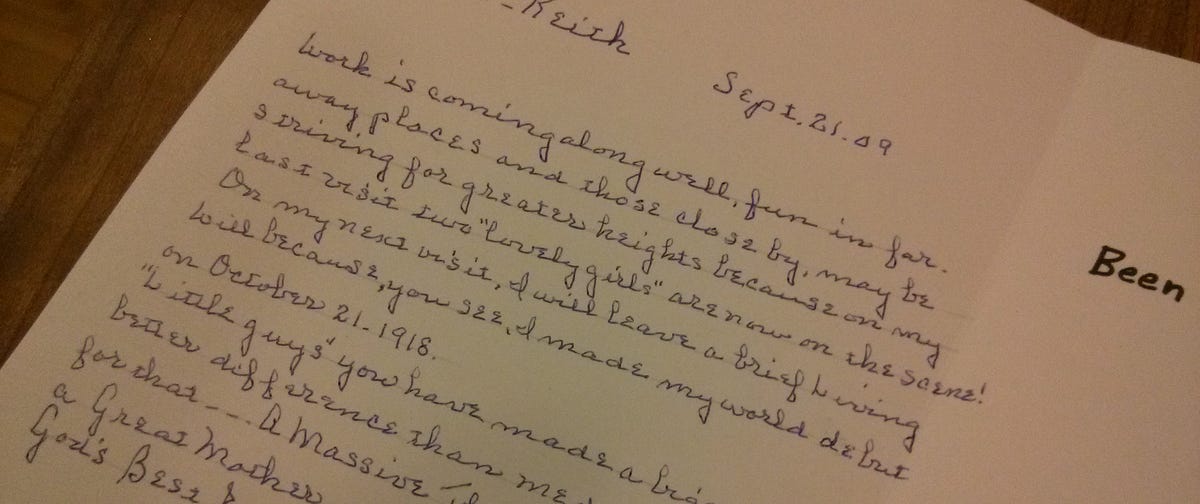 -Keith
Sept. 21-09
Work is coming along well, fun in far.
away places and those close by, may be
striving for greater heights because on my
last visit two "lovely girls" are now on the scene!
On my next visit, I will leave a brief Living
Will because, you see, I made my world debut
on October 21-1918.
"Little guys" you have made a
better difference than me
for that --- A Massive
a Great Mother
God's Best
Been